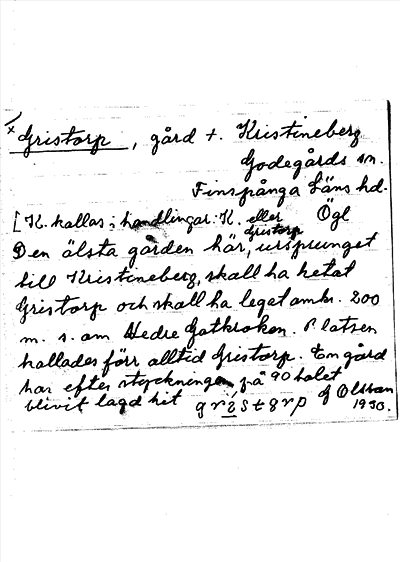 × Gristorp, gård t. Kristineberg
Godegårds sn.
Finspånga Läns hd.
[K. kallas i handlingar: K. eller Gristorp Ögl
Den älsta gården här, ursprunget
till Kristineberg, skall ha hetat
Gristorp och skall ha legat omkr. 200
m. s. om Nedre Gatkroken. Platsen
kallades förr alltid Gristorp. En gård
har efter styckningen på 90 talet
blivit lagd hit grìstgrp
1930.